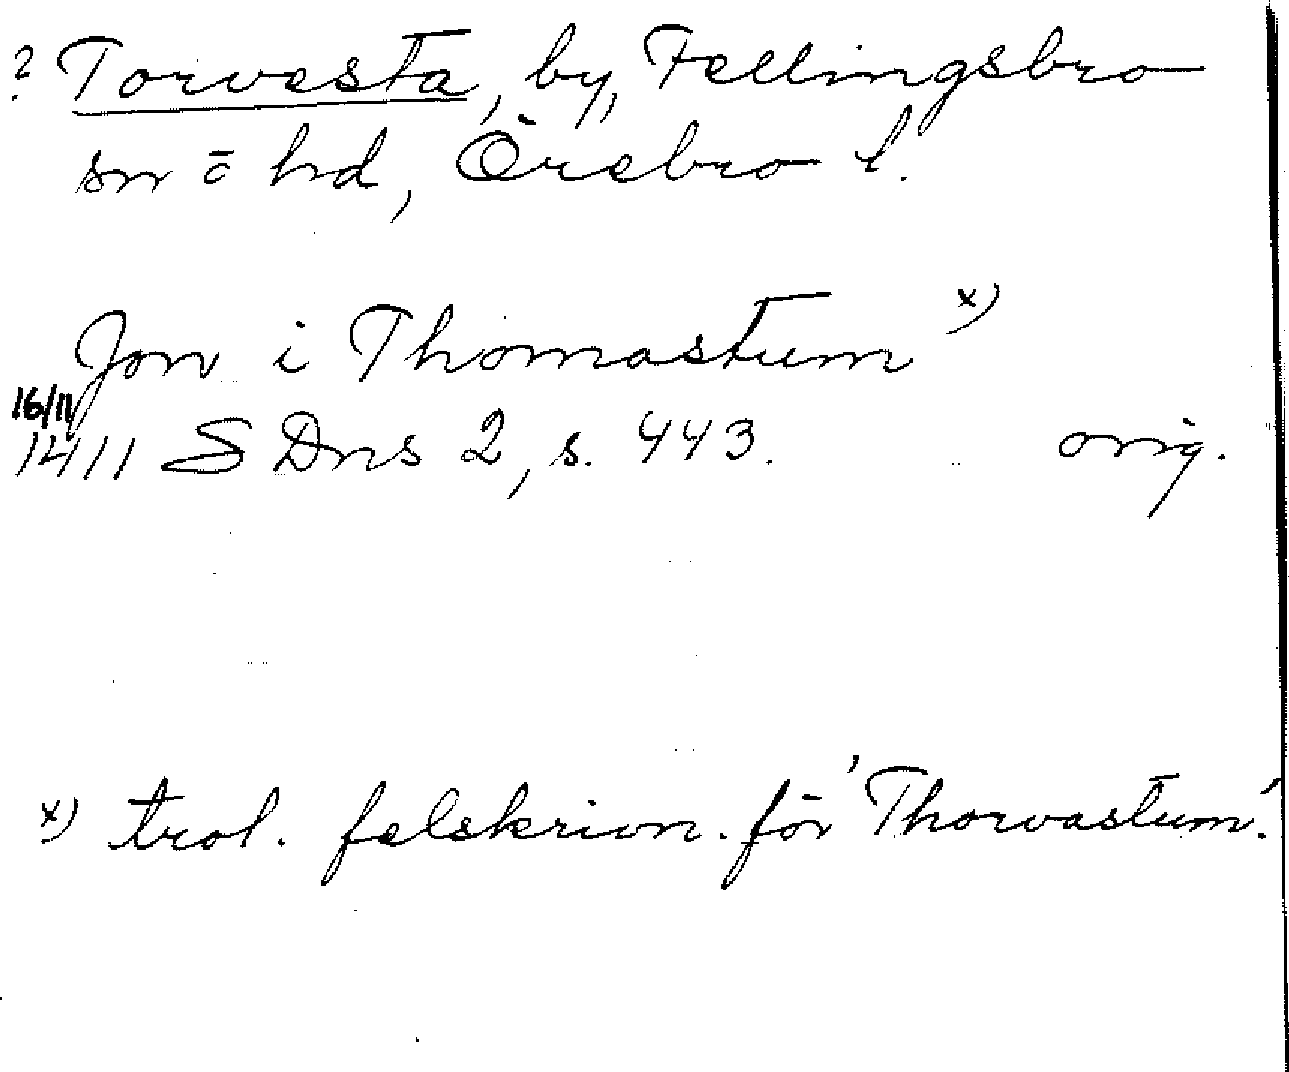 ? Torvesta, by, Fellingsbro
sn o hd, Örebro l.
Jon i Thomastum x)
16/11
1411 SDns 2, s. 443. orig.
x) trol. felskrivn. för 'Thorvastum'.